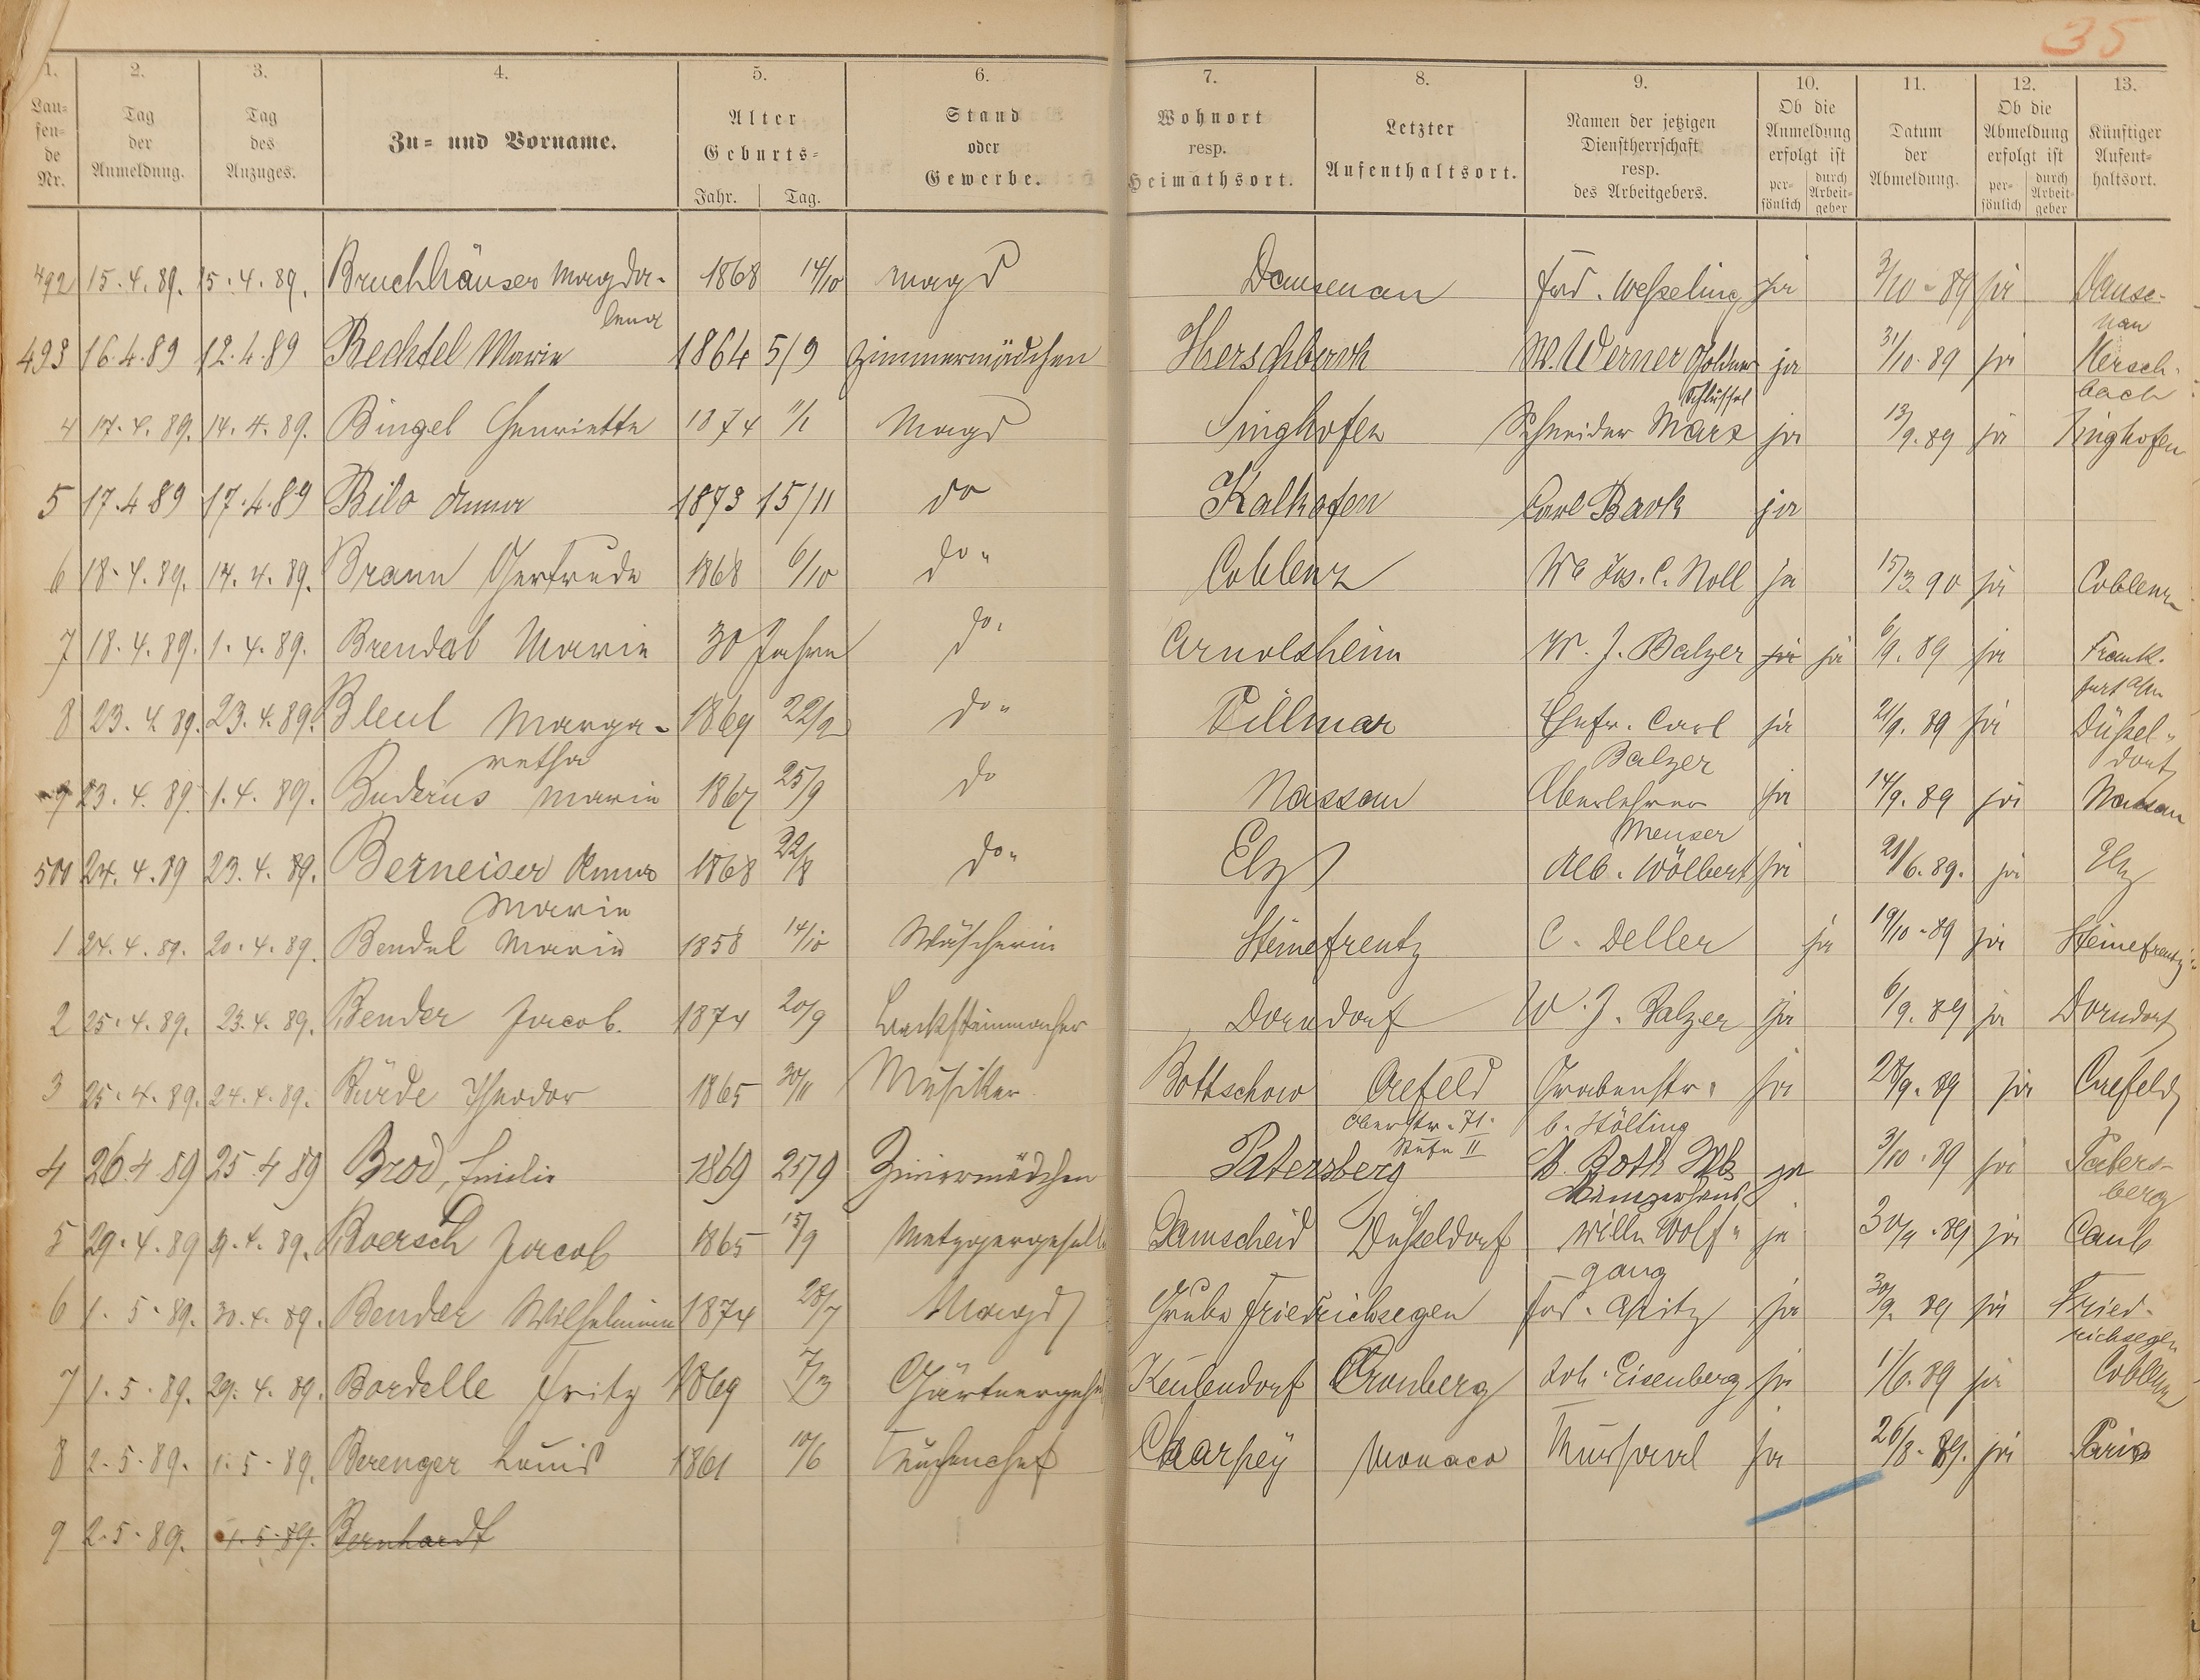 35
1. 2. 3. 4. 5. 6. 7. 8. 9. 10. 11. 12. 13.
Laufende Nr. | Tag der Anmeldung. | Tag des Anzuges. | Zu- und Vorname. | Alter Geburts- Jahr. Tag. | Stand oder Gewerbe. | Wohnort resp. Heimathsort. | Letzter Aufenthaltsort. | Namen der jetzigen Dienstherrschaft resp. des Arbeitgebers. | Ob die Anmeldung erfolgt ist persönlich durch Arbeitgeber | Datum der Abmeldung. | Ob die Abmeldung erfolgt ist persönlich durch Arbeitgeber | Künftiger Aufenthaltsort.
492 15.4.89. 15.4.89. Bruchhäuser Magda- 1868 14/10 Magd Dausenau Ferd. Weßeling ja 3/10-89 ja Dause-
lena nau
493 16.4.89 12.4.89 Bechtel Marie 1864 5/9 Zimmermädchen Herschbach W. Werner Goldner ja 31/10.89 ja Hersch-
Schlüssel bach
4 17.4.89. 14.4.89. Bingel Henriette 1874 11/1 Magd Singhofen Schneider Marx ja 13/9.89 ja Singhofen
5 17.4.89 17.4.89 Bilo Anna 1873 15/11 do Kalkofen Carl Back ja
6 18.4.89. 14.4.89. Braun Gertrude 1868 6/10 do" Coblenz Wb Jos. C. Noll ja 15/3.90 ja Coblenz
7 18.4.89. 1.4.89. Brendel Marie 30 Jahre do. Arnolsheim W. J. Balzer ja ja 6/9.89 ja Frank-
furt a/m
8 23.4.89. 23.4.89. Bleul Marga- 1869 22/2 do" Villmar Ehefr. Carl ja 21/9.89 ja Düßel-
retha Balzer dorf
9 23.4.89. 1.4.89. Buderus Marie 1867 25/9 do Nassau Oberlehrer ja 14/9.89 ja Nassau
Menser
500 24.4.89 23.4.89. Berneiser Anna 1868 22/8 do" Elz Alb. Wölbert ja 21/6.89. ja Elz
Marie
1 24.4.89. 20.4.89. Bendel Marie 1858 14/10 Wäscherin Steinefrentz C. Deller ja 19/10-89 ja Steinefrentz
2 25.4.89. 23.4.89. Bender Jacob. 1874 20/9 Backsteinmacher Dorndorf W. J. Balzer ja 6/9.89 ja Dorndorf
3 25.4.89. 24.4.89. Bürde Theodor 1865 30/11 Musiker Bottschow Crefeld Grabenstr. ja 28/9.89 ja Crefeld
Oberstr. 71. b. Stölting
Stufe II
4 26.4.89 25.4.89 Brod, Emilie 1869 25/9 Zimmermädchen Patersberg A. Roth Wb ja 3/10.89 ja Paters-
berg
5 29.4.89 9.4.89. Boersch Jacob 1865 15/9 Metzgergeselle Damscheid Düßeldorf Willh Wolf- ja 30/9.89 ja Caub
gang
6 1.5.89. 30.4.89. Bender Wilhelmine 1874 28/7 Magd Grube Friedrichsegen Ferd. Opitz ja 30/9.89 ja Fried-
richsegen
7 1.5.89. 29.4.89. Bordelle Fritz 1869 7/3 Gärtnergeh Keulendorf Cronberg Joh. Eisenberg ja 1/6.89 ja Coblenz
8 2.5.89. 1.5.89. Berenger Louis 1861 10/6 Küchenchef Charpey Monaco Kursaal ja 26/8.89. ja Paris
9 2.5.89. 1.5.89. Bernhardt